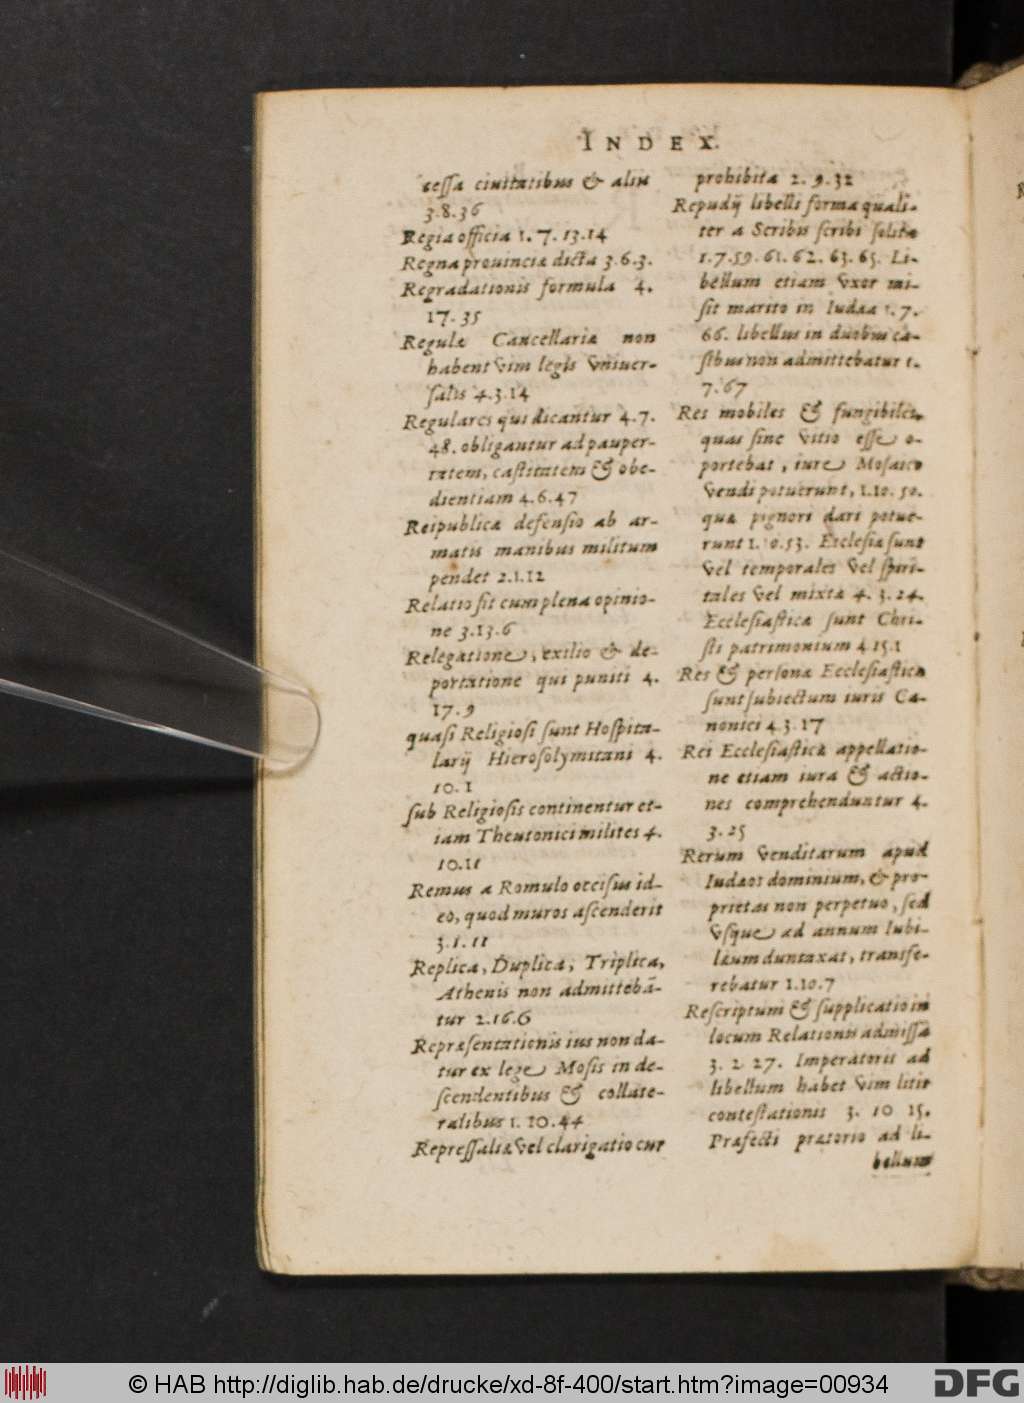 INDEX.
cessa ciuitatibus & aliis
3.8.36
Regia officia 1. 7. 13.14
Regna prouinciæ dicta 3.6.3.
Regradationis formula 4.
17. 35
Regulæ Cancellariæ non
habent vim legis vniuer-
salis 4.3.14
Regulares qui dicantur 4.7.
48. obligantur ad pauper-
tatem, castitatem & obe-
dientiam 4.6.47
Reipublicæ defensio ab ar-
matis manibus militum
pendet 2.1.12
Relatio fit cum plena opinio-
ne 3.13.6
Relegatione, exilio & de-
portatione qui puniti 4.
17.9
quasi Religiosi sunt Hospita-
larij Hierosolymitani 4.
10.1
sub Religiosis continentur et-
iam Theutonici milites 4.
10.11
Remus a Romulo occisus id-
eo, quod muros ascenderit
3.1.11
Replica, Duplica, Triplica,
Athenis non admittebã-
tur 2.16.6
Repræsentationis ius non da-
tur ex lege Mosis in de-
scendentibus & collate-
ralibus 1. 10.44
Repressaliæ vel clarigatio cur
prohibita 2. 9.32
Repudij libelli forma quali-
ter a Scribis scribi solita
1.7.59.61.62.63.65. Li-
bellum etiam vxor mi-
sit marito in Iudæa 1.7.
66. libellus in duobus ca-
sibus non admittebatur 1.
7.67
Res mobiles & fungibiles,
quas sine vitio esse o-
portebat, iure Mosaico
vendi potuerunt, 1.10.50.
quæ pignori dari potue-
runt 1.10.53. Ecclesiæ sunt
vel temporales vel spiri-
tales vel mixtæ 4. 3.24.
Ecclesiasticæ sunt Chri-
sti patrimonium 4.15.1
Res & personæ Ecclesiasticæ
sunt subiectum iuris Ca-
nonici 4.3.17
Rei Ecclesiasticæ appellatio-
ne etiam iura & actio-
nes comprehenduntur 4.
3.25
Rerum venditarum apud
Iudæos dominium, & pro-
prietas non perpetuo, sed
vsque ad annum Iubi-
læum duntaxat, transfe-
rebatur 1.10.7
Rescriptum & supplicatio in
locum Relationis admissa
3. 2 27. Imperatoris ad
libellum habet vim litis
contestationis 3. 10 15.
Præfecti prætorio ad li-
bellum
© HAB http://diglib.hab.de/drucke/xd-8f-400/start.htm?image=00934
DFG